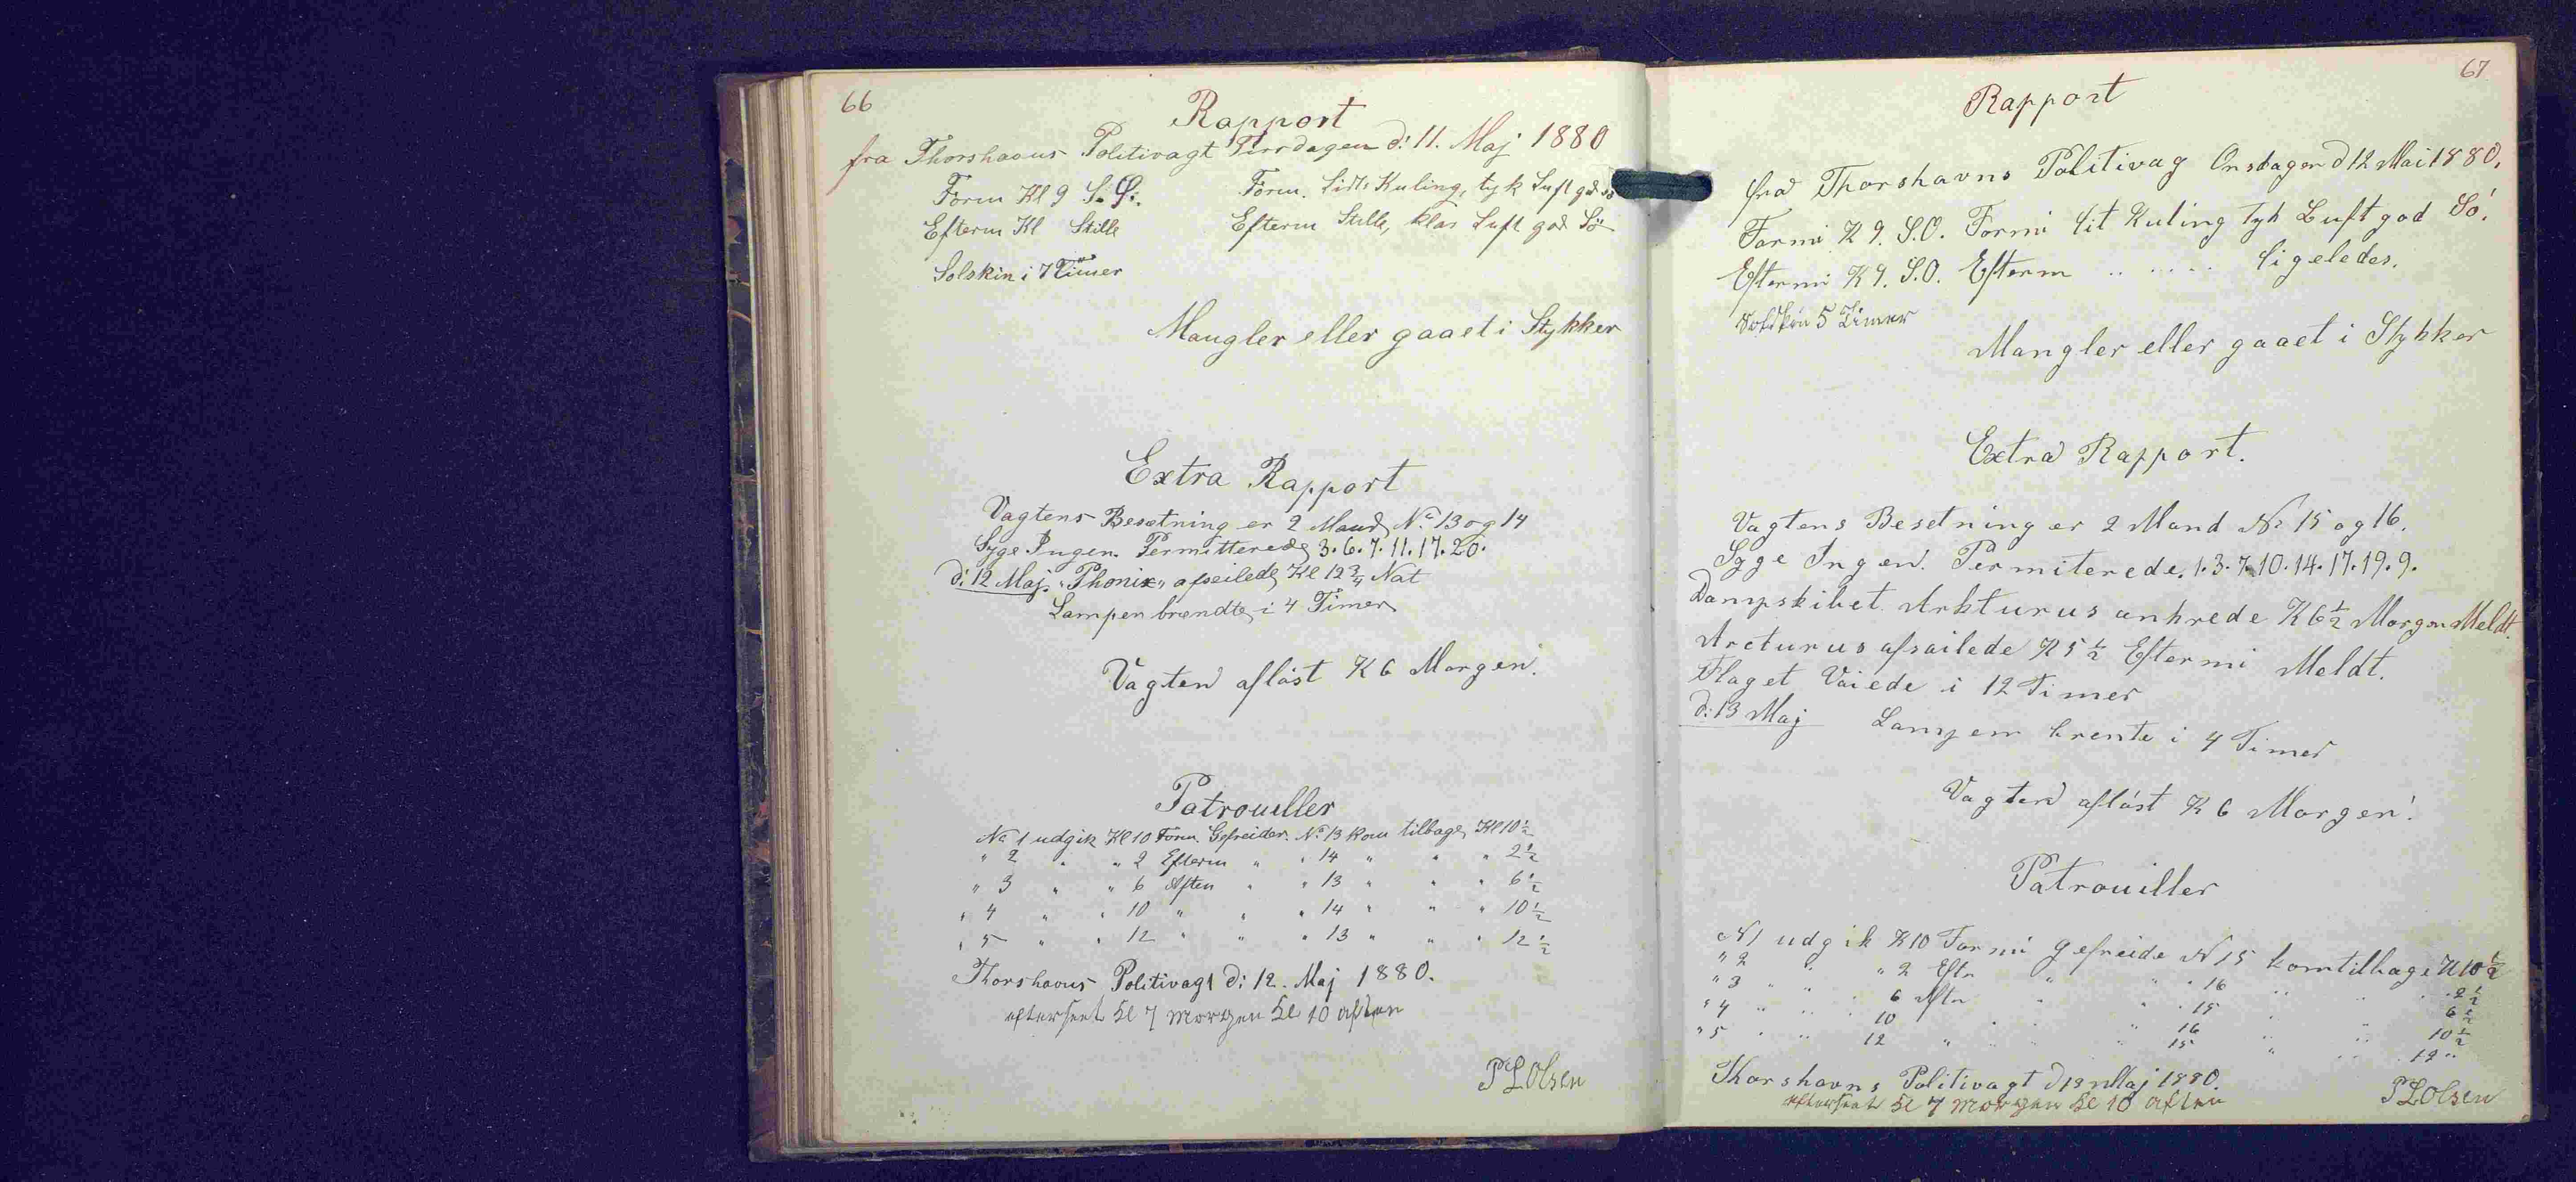 66
Rapport
fra Thorshavns Politivagt Tirsdagen d: 11. Maj 1880
Form Kl 9 S.O. Form. Lidt Kuling, tyk Luft god Sö
Efterm Kl Stille Efterm Stille, klar Luft god Sö
Solskin i 7 Timer
Mangler eller gaaet i Stykker
Extra Rapport
Vagtens Besætning er 2 Mand No 13 og 14
Syge Ingen. Permitterede 3. 6. 7. 11. 17. 20.
d: 12 Maj. "Phonix" afseilede Kl 12 3/4 Nat
Lampen brændte i 4 Timer
Vagten aflöst K 6 Morgen.
Patrouiller
No 1 udgik Kl 10 Form. Gefreider No 13 kom tilbage Kl 10 1/2
" 2 " " 2 Efterm " " 14 " " " 2 1/2
" 3 " " 6 Aften " " 13 " " " 6 1/2
" 4 " " 10 " " " 14 " " " 10 1/2
" 5 " " 12 " " " 13 " " " 12 1/2
Thorshavns Politivagt d: 12. Maj 1880.
efterseet kl 7 morgen kl 10 aften
P L Olsen
67
Rapport
fra Thorshavns Politivag Onsdagen d 12 Mai 1880.
Formi K 9. S.O. Formi lit Kuling Tyk Luft god Sö.
Eftermi K 9. S.O. Efterm .. .. .. .. ligeledes.
Solskin 5 Timer
Mangler eller gaaet i Stykker
Extra Rapport.
Vagtens Besetning er 2 Mand No 15 og 16.
Syge Ingen. Permiterede. 1. 3. 7. 10. 14. 17. 19. 9.
Dampskibet Arkturus ankrede K 6 1/2 Morgen Meldt.
Arcturus afsailede K 5 1/2 Eftermi Meldt.
Flaget Vaiede i 12 Timer
d: 13 Maj Lampen brente i 4 Timer
Vagten aflöst K 6 Morgen.
Patrouiller
N 1 udgik K 10 Formi gefreide N 15 kom tilbage K 10 1/2
" 2 " " 2 Eftr " " " 16 " " " 2 1/2
" 3 " " " 6 Aftn " " 15 " " 6 1/2
" 4 " " " 10 " " " 16 " " 10 1/2
" 5 " " 12 " " " 15 " " 12 "
Thorshavns Politivagt d 13 Maj 1880.
efterseet kl 7 morgen kl 10 aften
P L Olsen